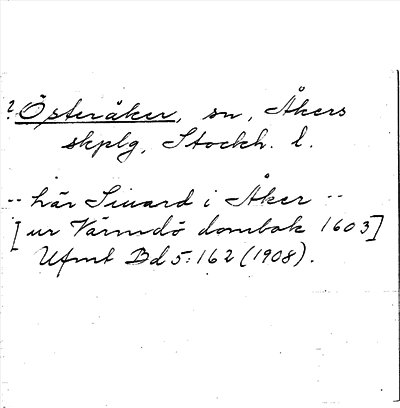 ? Österåker, sn, Åkers
skplg, Stockh. l.
-- här Siuard i Åker --
[ur Värmdö dombok 1603]
Ufmt Bd 5:162 (1908).